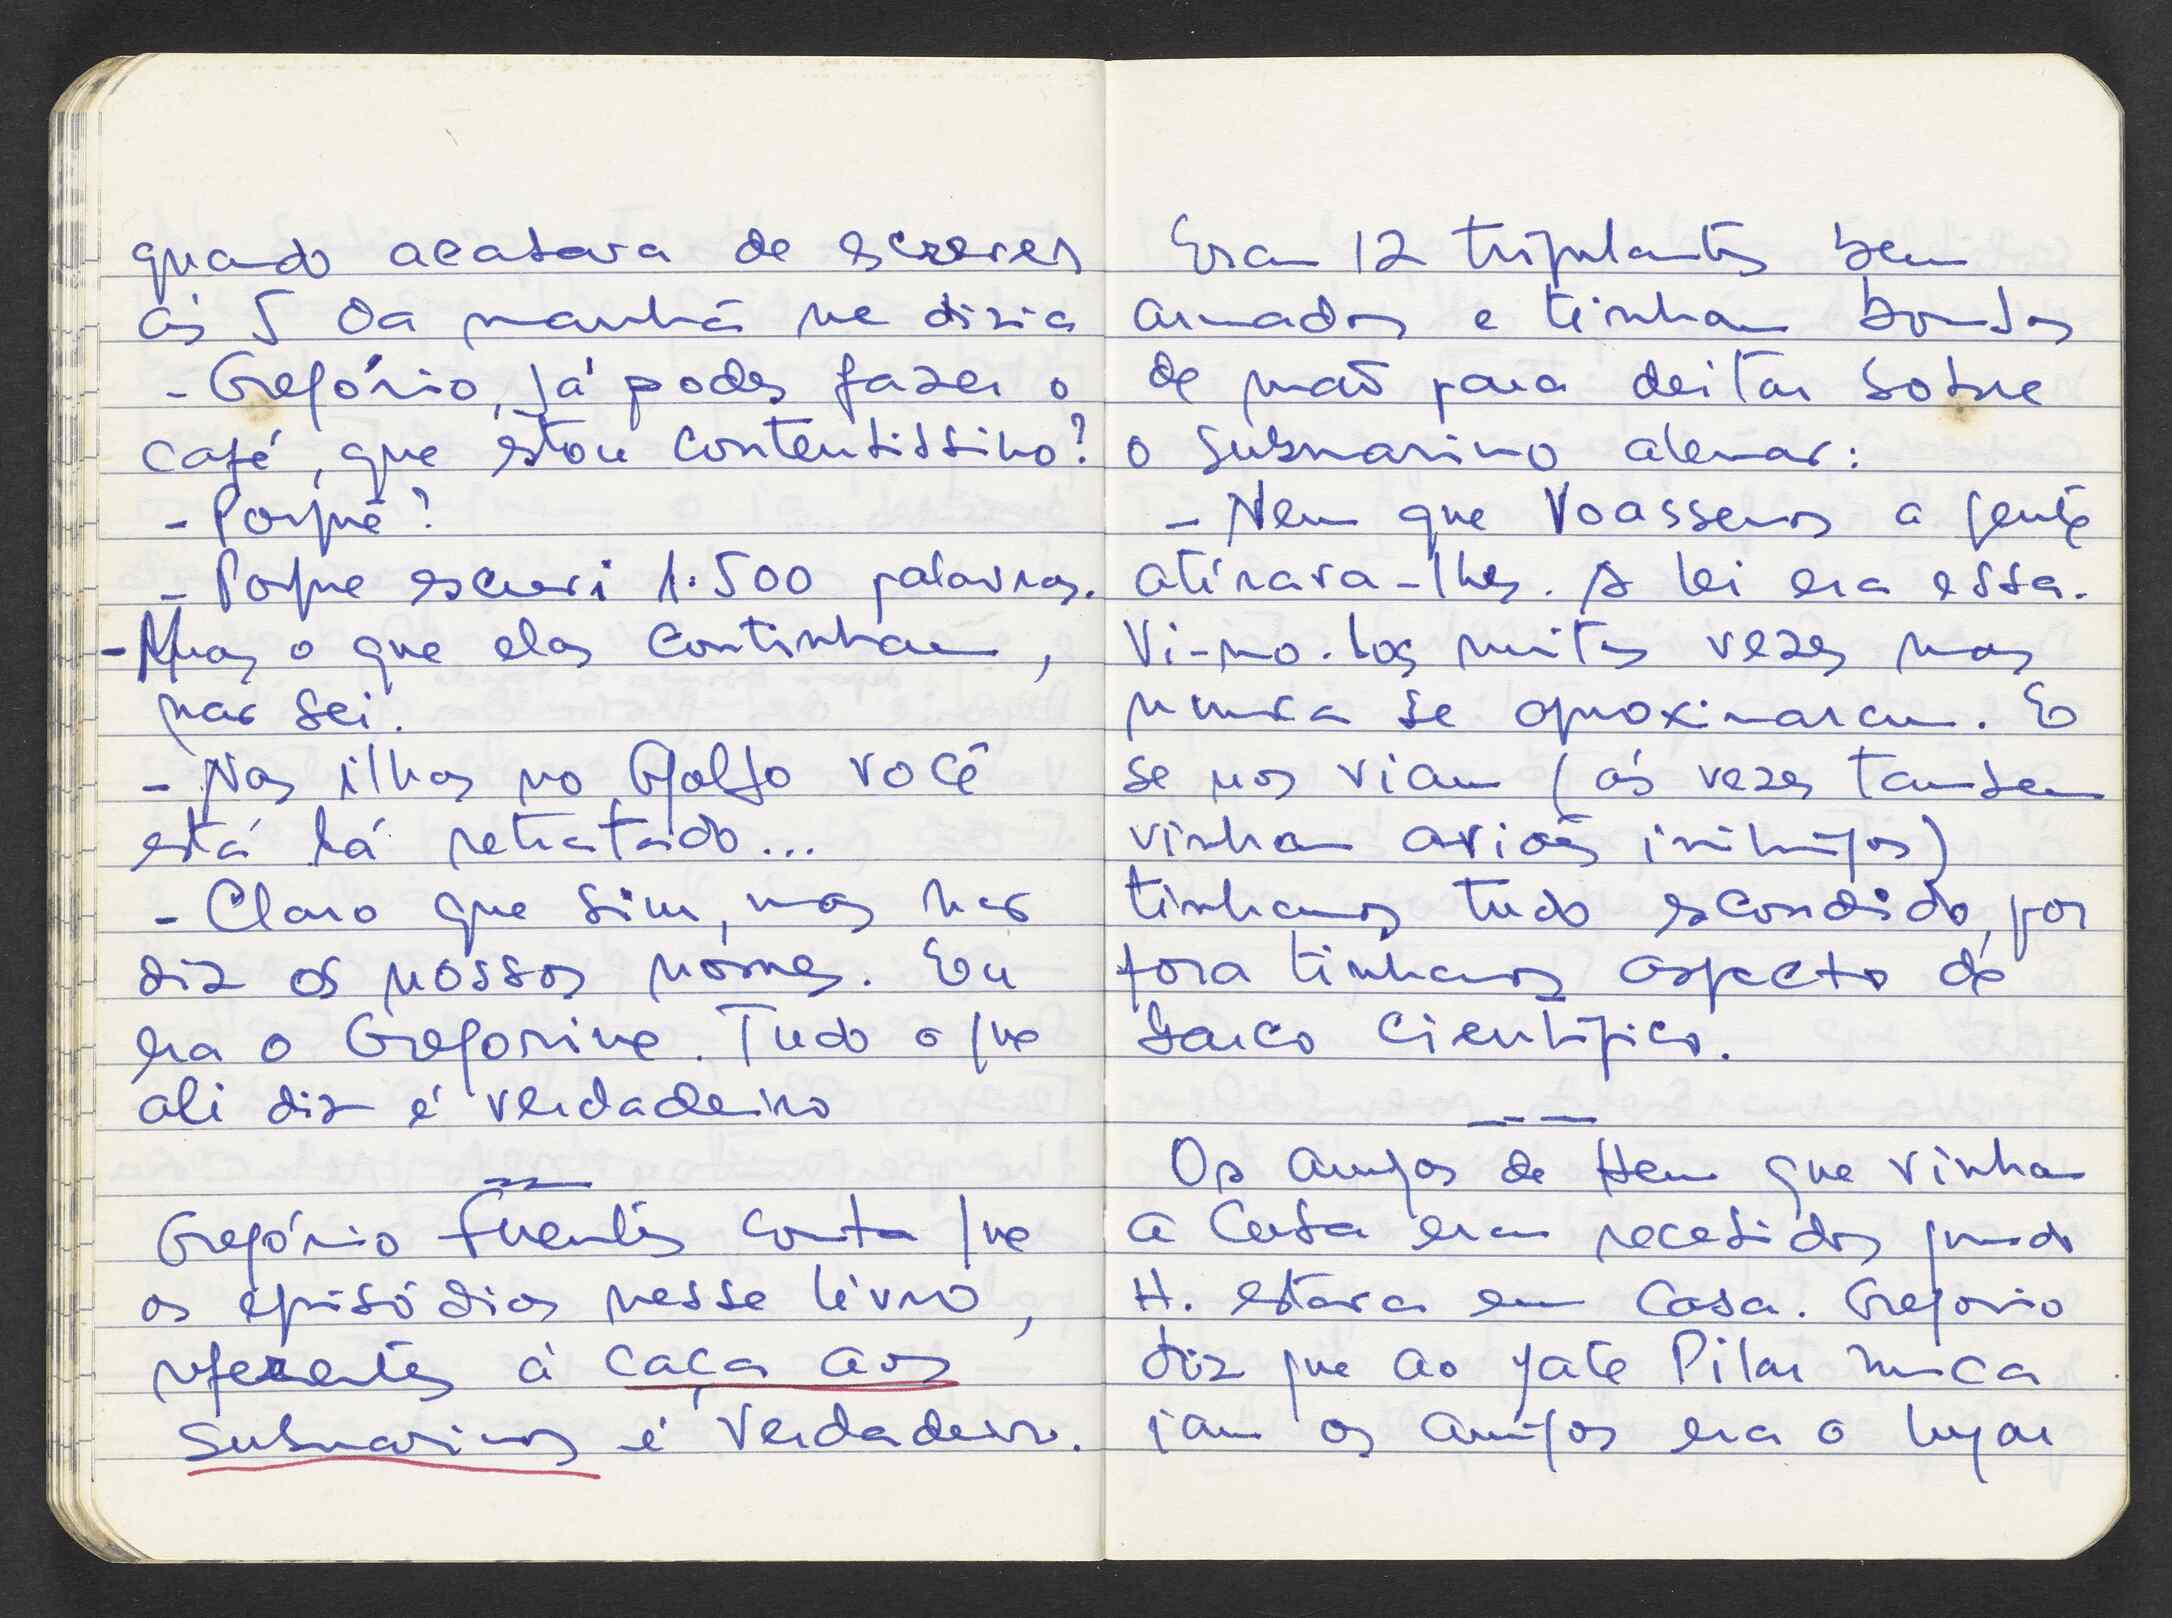 quando acabava de escrever
ás 5 da manhã me dizia
- Gregório, já podes fazer o
café, que estou contentissimo?
- Porquê?
- Porque escrevi 1.500 palavras.
- Mas o que elas continham,
não sei.
- Nas ilhas no Golfo você
está lá retratado...
- Claro que sim, mas não
diz os nossos nomes. Eu
era o Gregorine. Tudo o que
ali diz é verdadeiro
Gregório Fuentes conta que
os episódios nesse livro,
referentes á caça aos
submarinos é verdadeiro.
Eram 12 tripulantes bem
armados e tinham bombas
de mão para deitar sobre
o submarino alemão:
- Nem que voassemos a gente
atirava-lhes. A lei era essa.
Vi-mo-los muitas vezes mas
nunca se aproximaram. E
se nos viam (ás vezes tambem
vinham aviões inimigos)
tinhamos tudo escondido, por
fora tinhamos aspecto de
barco cientifico.
Os amigos de Hem que vinham
a Cuba eram recebidos quando
H. estava em casa. Gregorio
diz que ao yate Pilar nunca
iam os amigos era o lugar